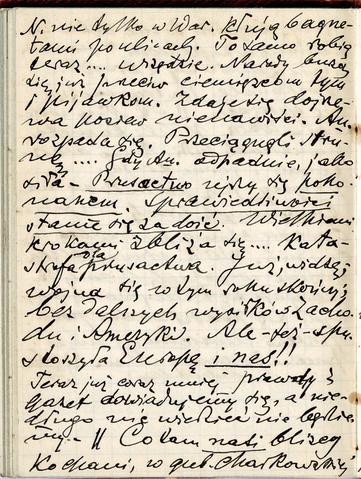 N. nie tylko w War. kłują bagne-
tami po ulicach. To samo robią
teraz .... wszędzie. Narody burzą
się już przeciw ciemięzcom tym
i pijawkom. Zdaje się dojrze-
wa posiew nienawiści. Au.
rozpada się. Przeciągnęli stru-
nę .... Gdy Au. odpadnie, jako
siła - Prusactwo ujrzy się poko-
nanem. Sprawiedliwości
stanie się zadość. Wielkimi
krokami zbliża się .... kata-
strofa dla prusactwa. Już widzę,
wojna się w tym roku skończy
bez dalszych wysiłków Zacho-
du i Ameryki. Ale-też-spu-
stoszyła Europę i nas!!
Teraz już coraz mniej prawdy z
gazet dowiadujemy się, a nie-
długo nic wiedzieć nie będzie-
my. - || Co tam nasi bliscy
Kochani, w gub. Charkowskiej,